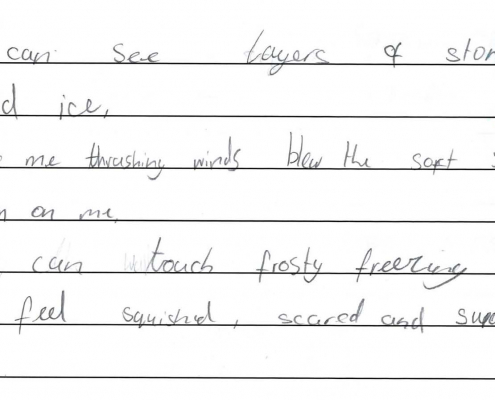 can see layers of ston
d ice,
me thrashing winds blew the soft s
n on me,
can touch frosty freezing
feel squished, scared and sup